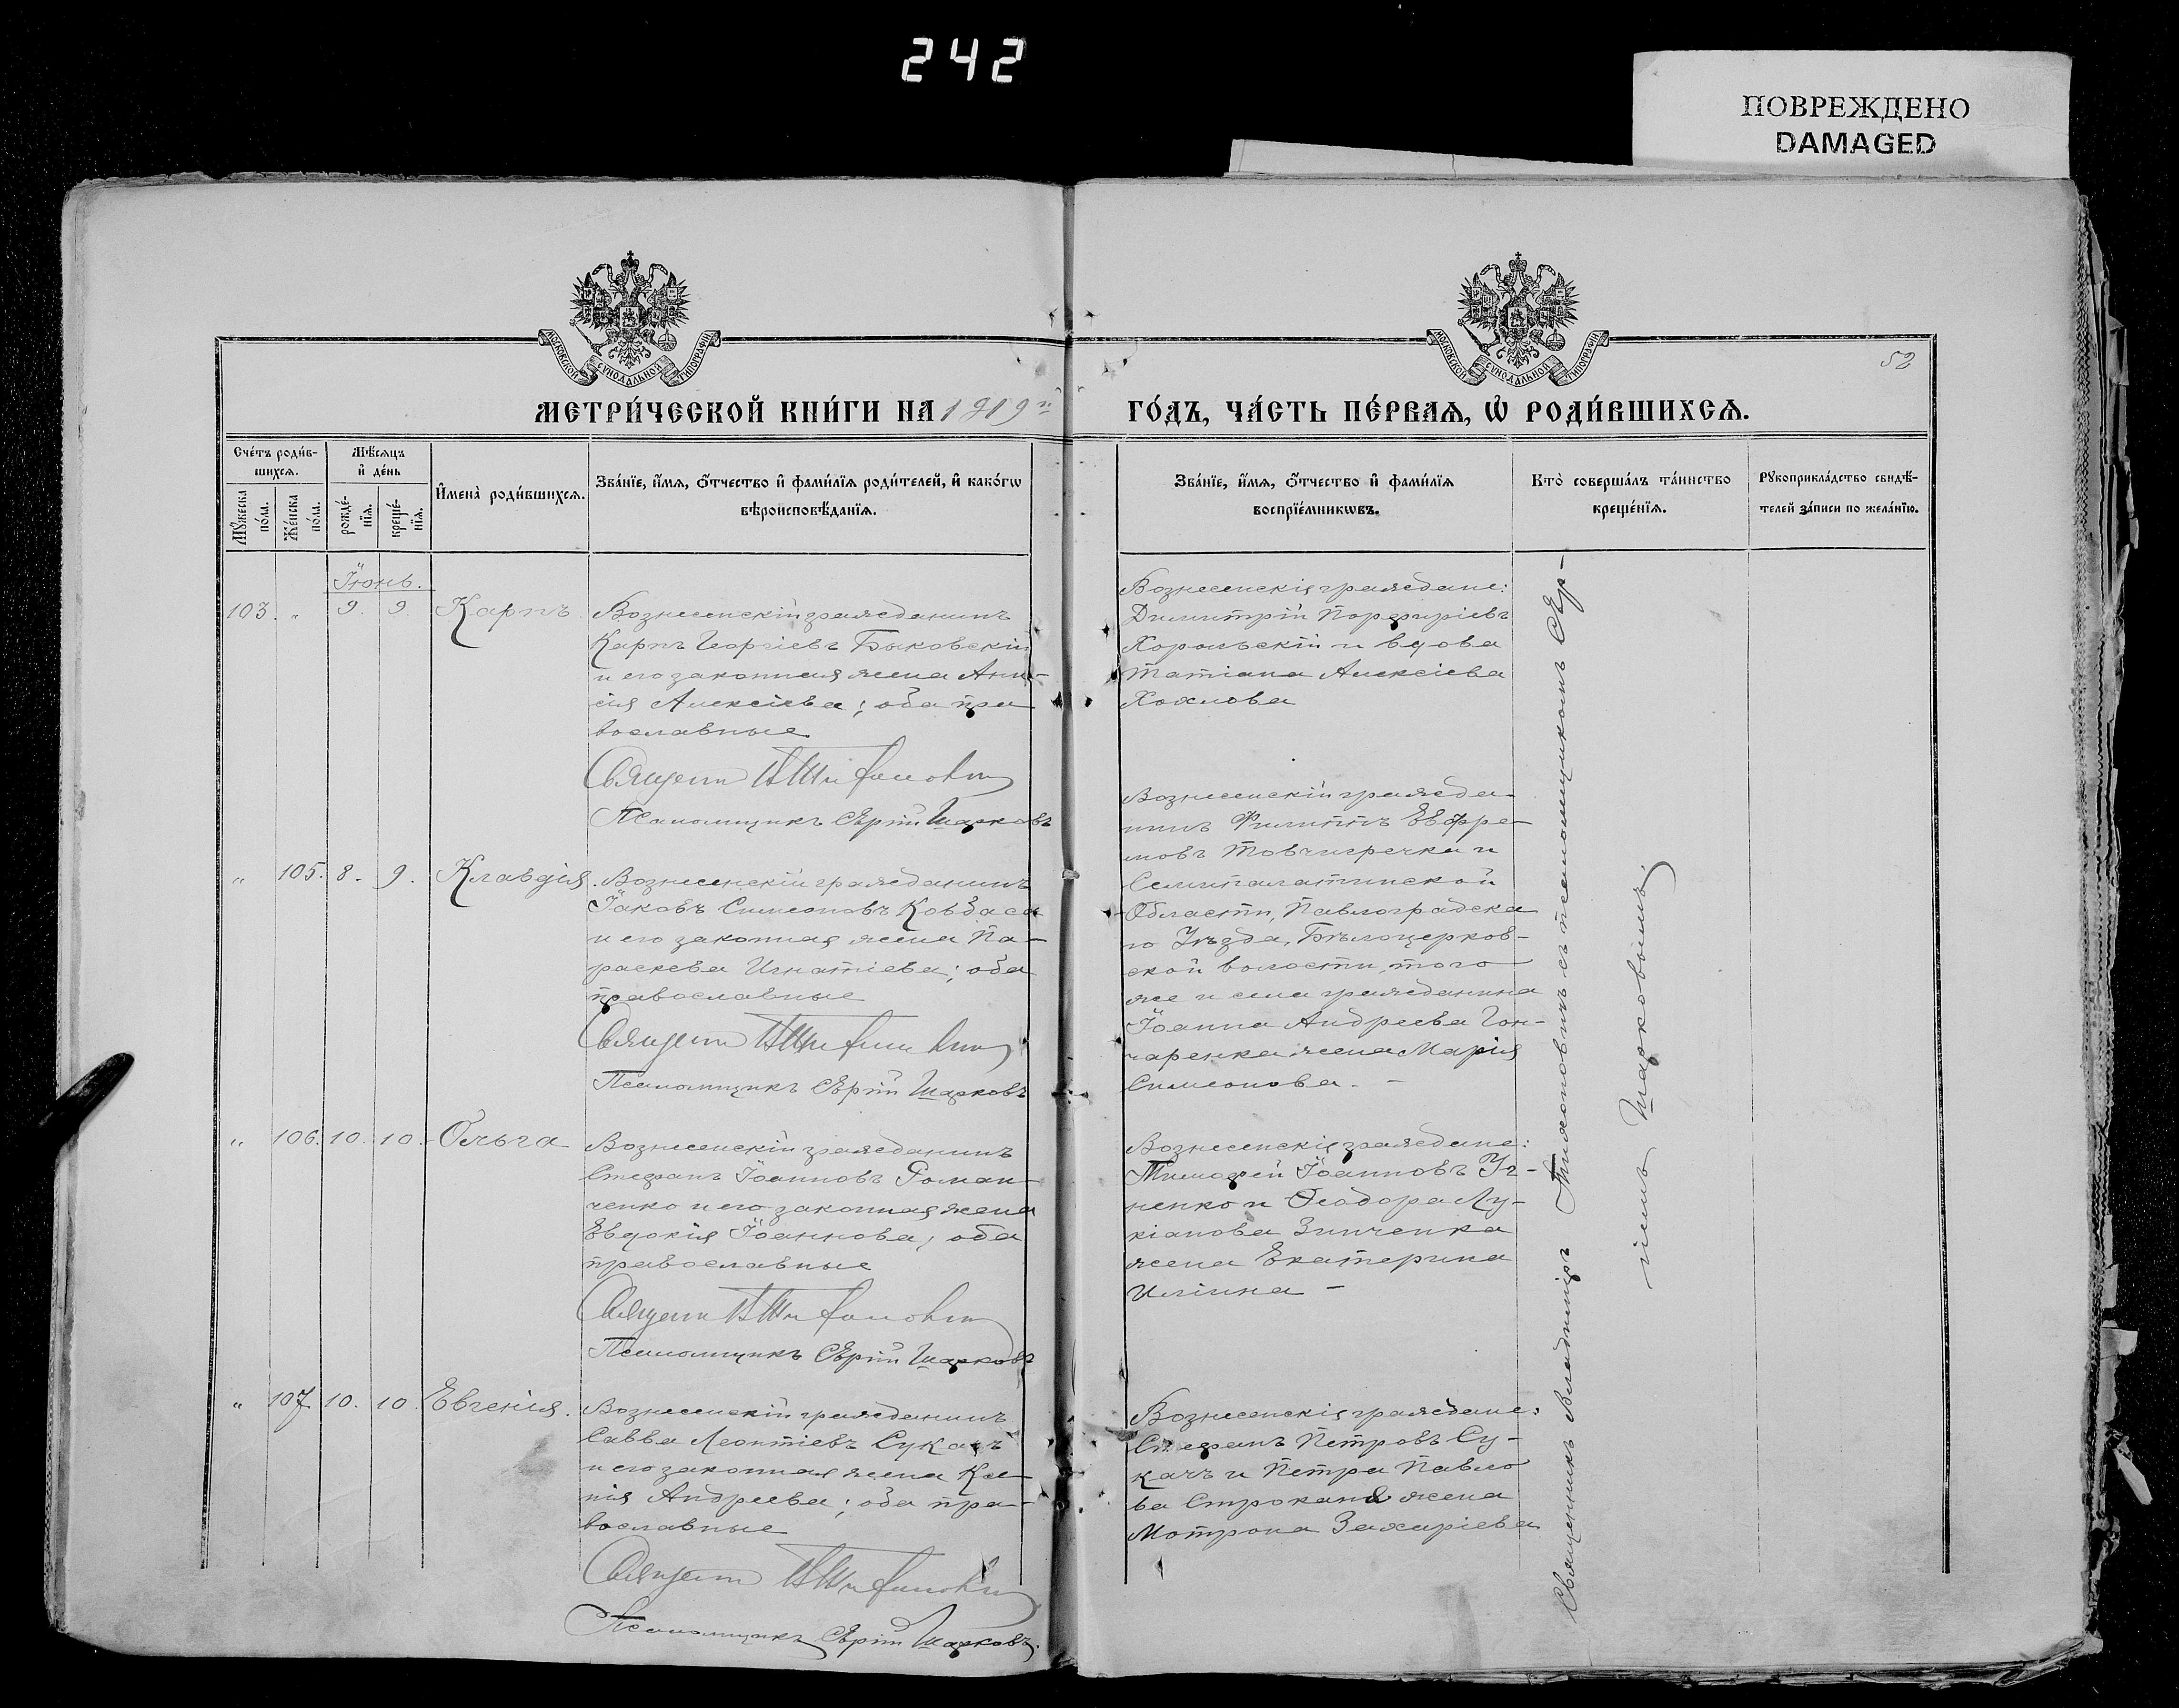 242
ПОВРЕЖДЕНО
DAMAGED
МОСКОВСКОЙ СУНОДАЛЬНОЙ ТИПОГРАФІИ
МОСКОВСКОЙ СУНОДАЛЬНОЙ ТИПОГРАФІИ
52
МЕТРИ́ЧЕСКОЙ КНИ́ГИ НА 1919й
ГО́ДЪ, ЧА́СТЬ ПЕ́РВАѦ, Ѡ РОДИ́ВШИХСѦ.
Сче́тъ роди́в-
шихсѧ.
Мѣсѧцъ
и де́нь
Мꙋжеска
по́ла.
Же́нска
по́ла.
рожде́-
нїѧ.
креще́-
нїѧ.
Имена̀ роди́вшихсѧ.
Зва́нїе, и́мѧ, о́тчество и фами́лїѧ роди́телей, и како́гѡ
вѣроисповѣ́данїѧ.
Зва́нїе, и́мѧ, о́тчество и фами́лїѧ
воспрїе́мникѡвъ.
Кто̀ соверша́лъ та́инство
креще́нїѧ.
Рꙋкоприкла́дство свидѣ́-
телей за́писи по жела́нїю.
Іюнь.
103. „ 9. 9. Карпъ.
Вознесенскій гражданинъ
Карпъ Георгіевъ Быковскій
и его законная жена Ани-
сія Алексіева; оба пра-
вославные
Священ
Псаломщикъ Сергій Шарковъ
Вознесенскія граждане:
Димитрій Порфиріевъ
Хорольскій и вдова
Татіана Алексіева
Хохлова
„ 105. 8. 9. Клавдія.
Вознесенскій гражданинъ
Іаковъ Симеоновъ Ковбаса
и его законная жена Па-
раскева Игнатіева; оба
православные
Священ
Псаломщикъ Сергій Шарковъ
Вознесенскій гражда-
нинъ Филиппъ Евфре-
мовъ Товчигречка и
Семипалатинской
Области, Павлоградска
го Уѣзда, Бѣлоцерков-
ской волости, того
же и села гражданина
Іоанна Андреева Гон-
чаренка жена Марія
Симеонова. -
„ 106. 10. 10. Ольга
Вознесенскій гражданинъ
Стефанъ Іоанновъ Роман-
ченко и его законная жена
Евдокія Іоаннова; оба
православные
Священ
Псаломщикъ Сергій Шарковъ
Вознесенскія граждане:
Тимофей Іоанновъ
ненко и Феодора Лу-
кіанова Зинченка
жена Екатерина
Иліина -
„ 107. 10. 10. Евгенія.
Вознесенскій гражданинъ
Савва Леонтіевъ Сукачъ
и его законная жена Ксе-
нія Андреева; оба пра-
вославные
Священ
Псаломщикъ Сергій Шарковъ.
Вознесенскія граждане:
Стефанъ Петровъ Су-
качъ и Петра Павло
ва Строканя жена
Мотрона Захаріева
Священникъ Владимиръ съ псаломщикомъ Сер-
гіемъ Шарковымъ